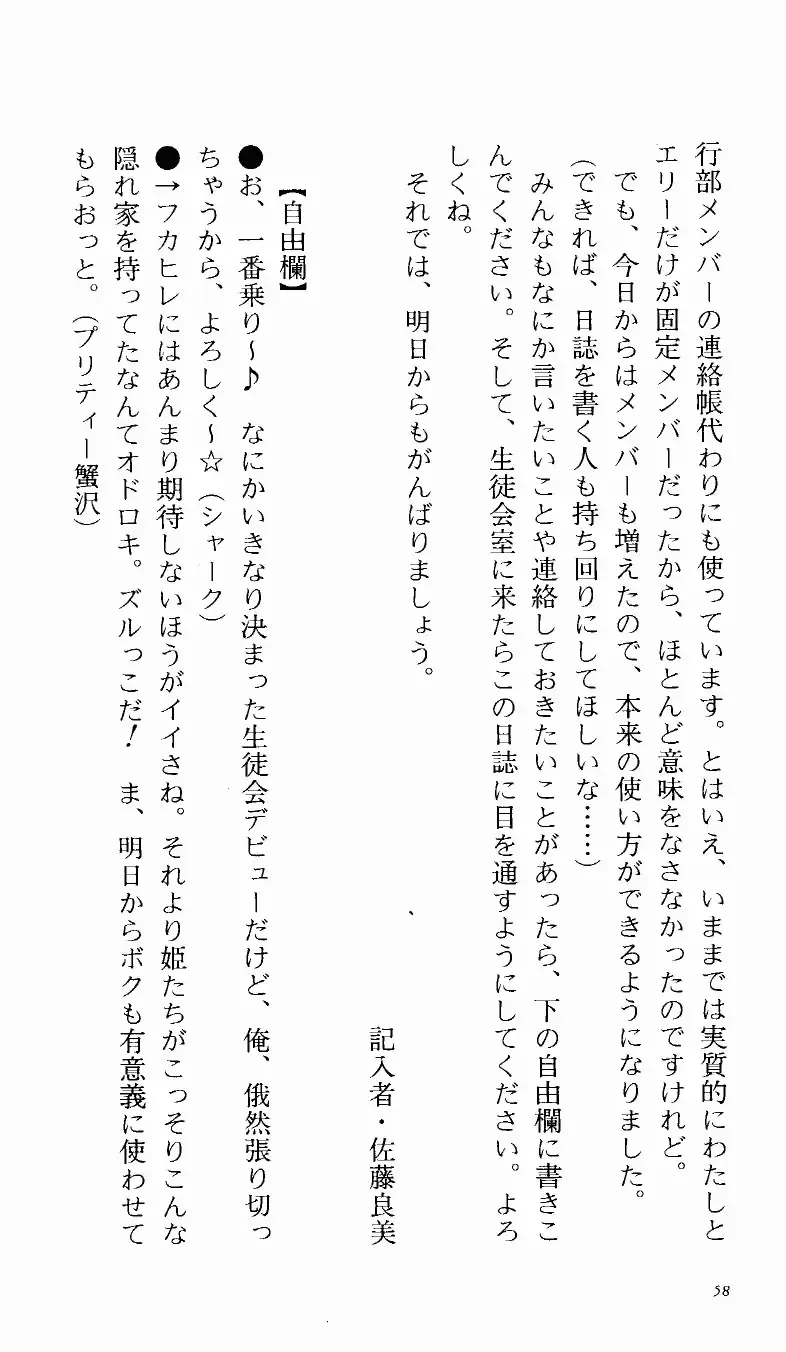 行部メンバーの連絡帳代わりにも使っています。とはいえ、いままでは実質的にわたしと
エリーだけが固定メンバーだったから、ほとんど意味をなさなかったのですけれど。
でも、今日からはメンバーも増えたので、本来の使い方ができるようになりました。
(できれば、日誌を書く人も持ち回りにしてほしいな……)
みんなもなにか言いたいことや連絡しておきたいことがあったら、下の自由欄に書きこ
んでください。そして、生徒会室に来たらこの日誌に目を通すようにしてください。よろ
しくね。
それでは、明日からもがんばりましょう。
記入者・佐藤良美
【自由欄】
●お、一番乗り～♪　なにかいきなり決まった生徒会デビューだけど、俺、俄然張り切っ
ちゃうから、よろしく～☆（シャーク）
●→フカヒレにはあんまり期待しないほうがイイさね。それより姫たちがこっそりこんな
隠れ家を持ってたなんてオドロキ。ズルっこだ！　ま、明日からボクも有意義に使わせて
もらおっと。（プリティー蟹沢）
58